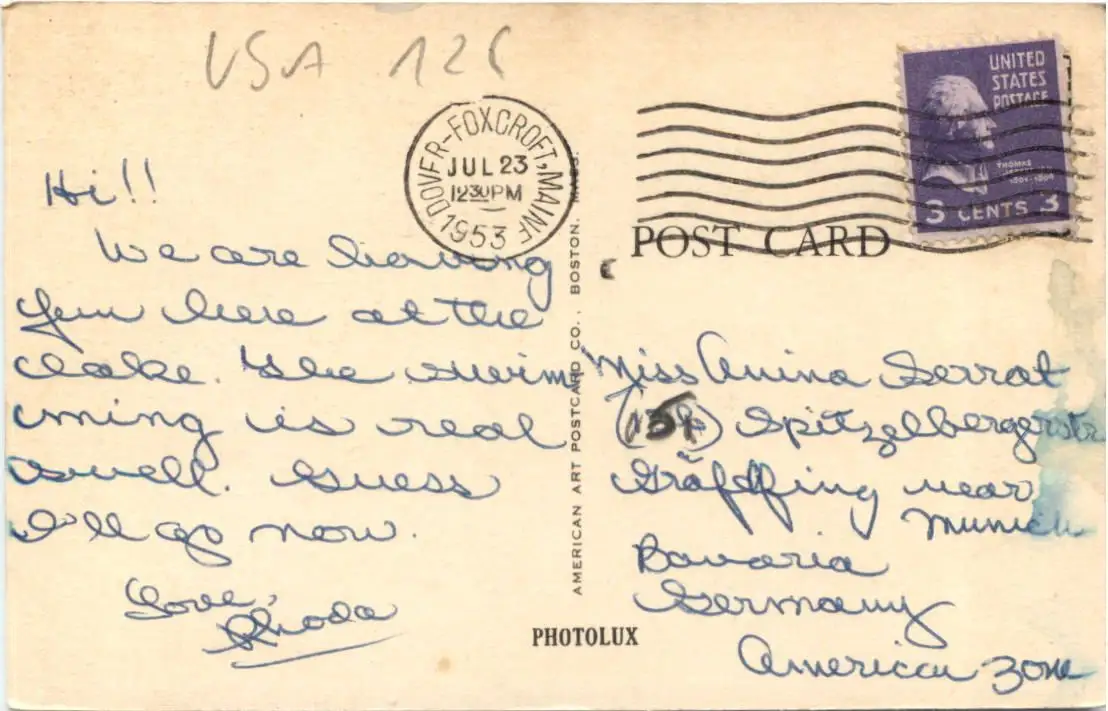 USA 126
DOVER-FOXCROFT, MAINE
JUL 23
12 30 PM
1953
UNITED
STATES
POSTAGE
THOMAS
JEFFERSON
1801-1809
3 CENTS 3
POST CARD
Hi!!
We are having
fun here at the
lake. The swim
ming is real
swell. Guess
I'll go now.
Love,
Rhoda
AMERICAN ART POSTCARD CO., BOSTON, MASS.
PHOTOLUX
Miss Anina Serrat
Spitzelbergerstr
Gräfelfing near
Munich
Bavaria
Germany
American zone